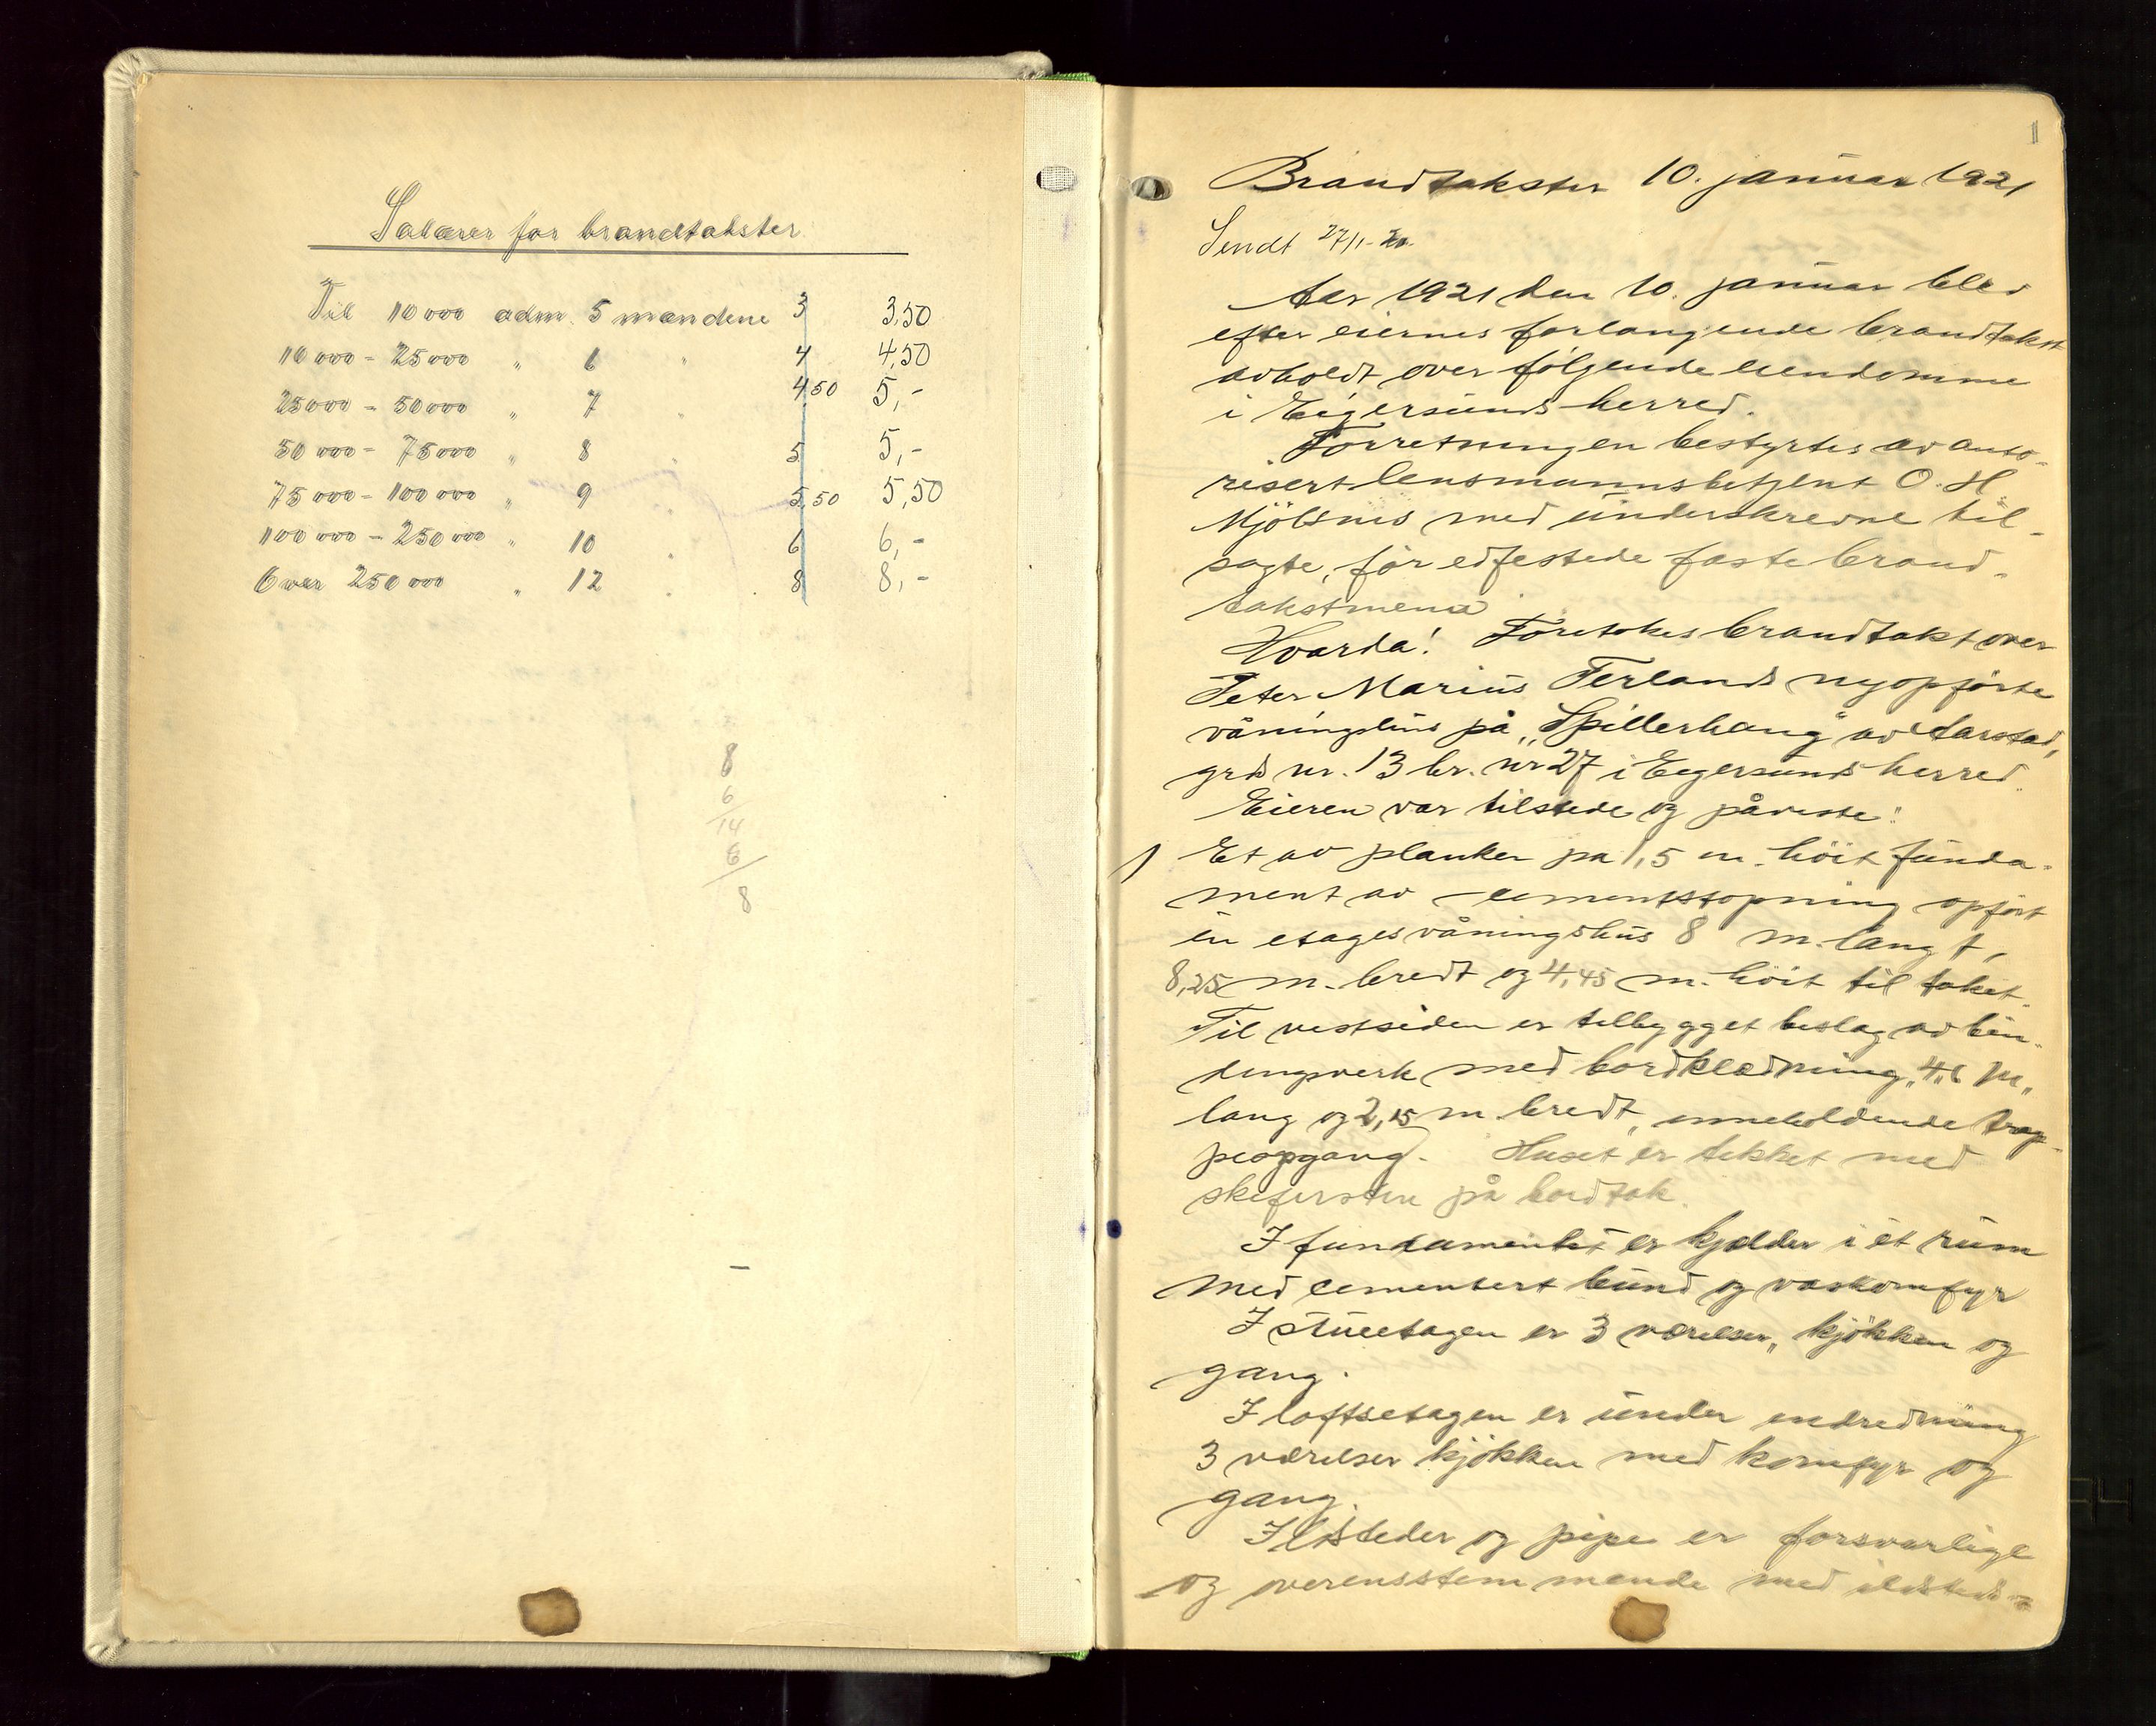 Salærer for brandtakster
Til 10000 adm. 5 mændene 3 3,50
10000 - 25000 " 6 " 4 4,50
25000 - 50000 " 7 " 4,50 5,-
50000 - 75000 " 8 " 5 5,-
75000 - 100000 " 9 " 5,50 5,50
100000 - 250000 " 10 " 6 6,-
Over 250000 " 12 " 8 8,-
8
6
14
6
8
1
Brandtakster 10. januar 1921
Sendt 27/1-
Aar 1921 den 10. januar blev
efter eiernes forlangende brandtakst
avholdt over følgende eiendomme
i Eigersunds herred.
Forretningen bestyrtes av auto-
risert lensmannsbetjent O. H.
Mjölsnes med underskrevne til-
sagte, før edfestede faste brand-
takstmenn
Hvorda! Foretokes brandtakst over
Peter Marius Terlands nyopförte
våningshus på „Spillerhaug" av Aarstad,
grds nr. 13 br. nr 27 i Eegersunds herred.
Eieren var tilstede og påviste:
1) Et av planker på 1,5 m. höit funda-
ment av cementstøpning opfört
en etages våningshus 8 m. langt,
8,25 m. bredt og 4,45 m. höit til taket.
Til vestsiden er tilbygget beslag av bin-
dingsverk med bordklædning, 4,6 m.
lang og 2,15 m bredt, inneholdende trap-
peopgang. Huset er tekket med
skifersten på bordtak.
I fundamentet er kjælder i et rum
med cementert bund og vaskomfyr
I stueetagen er 3 værelser, kjökken og
gang.
I loftsetagen er under indredning
3 værelser kjökken med komfyr og
gang.
Ildsteder og pipe er forsvarlige
og overensstemmende med ildsteds-